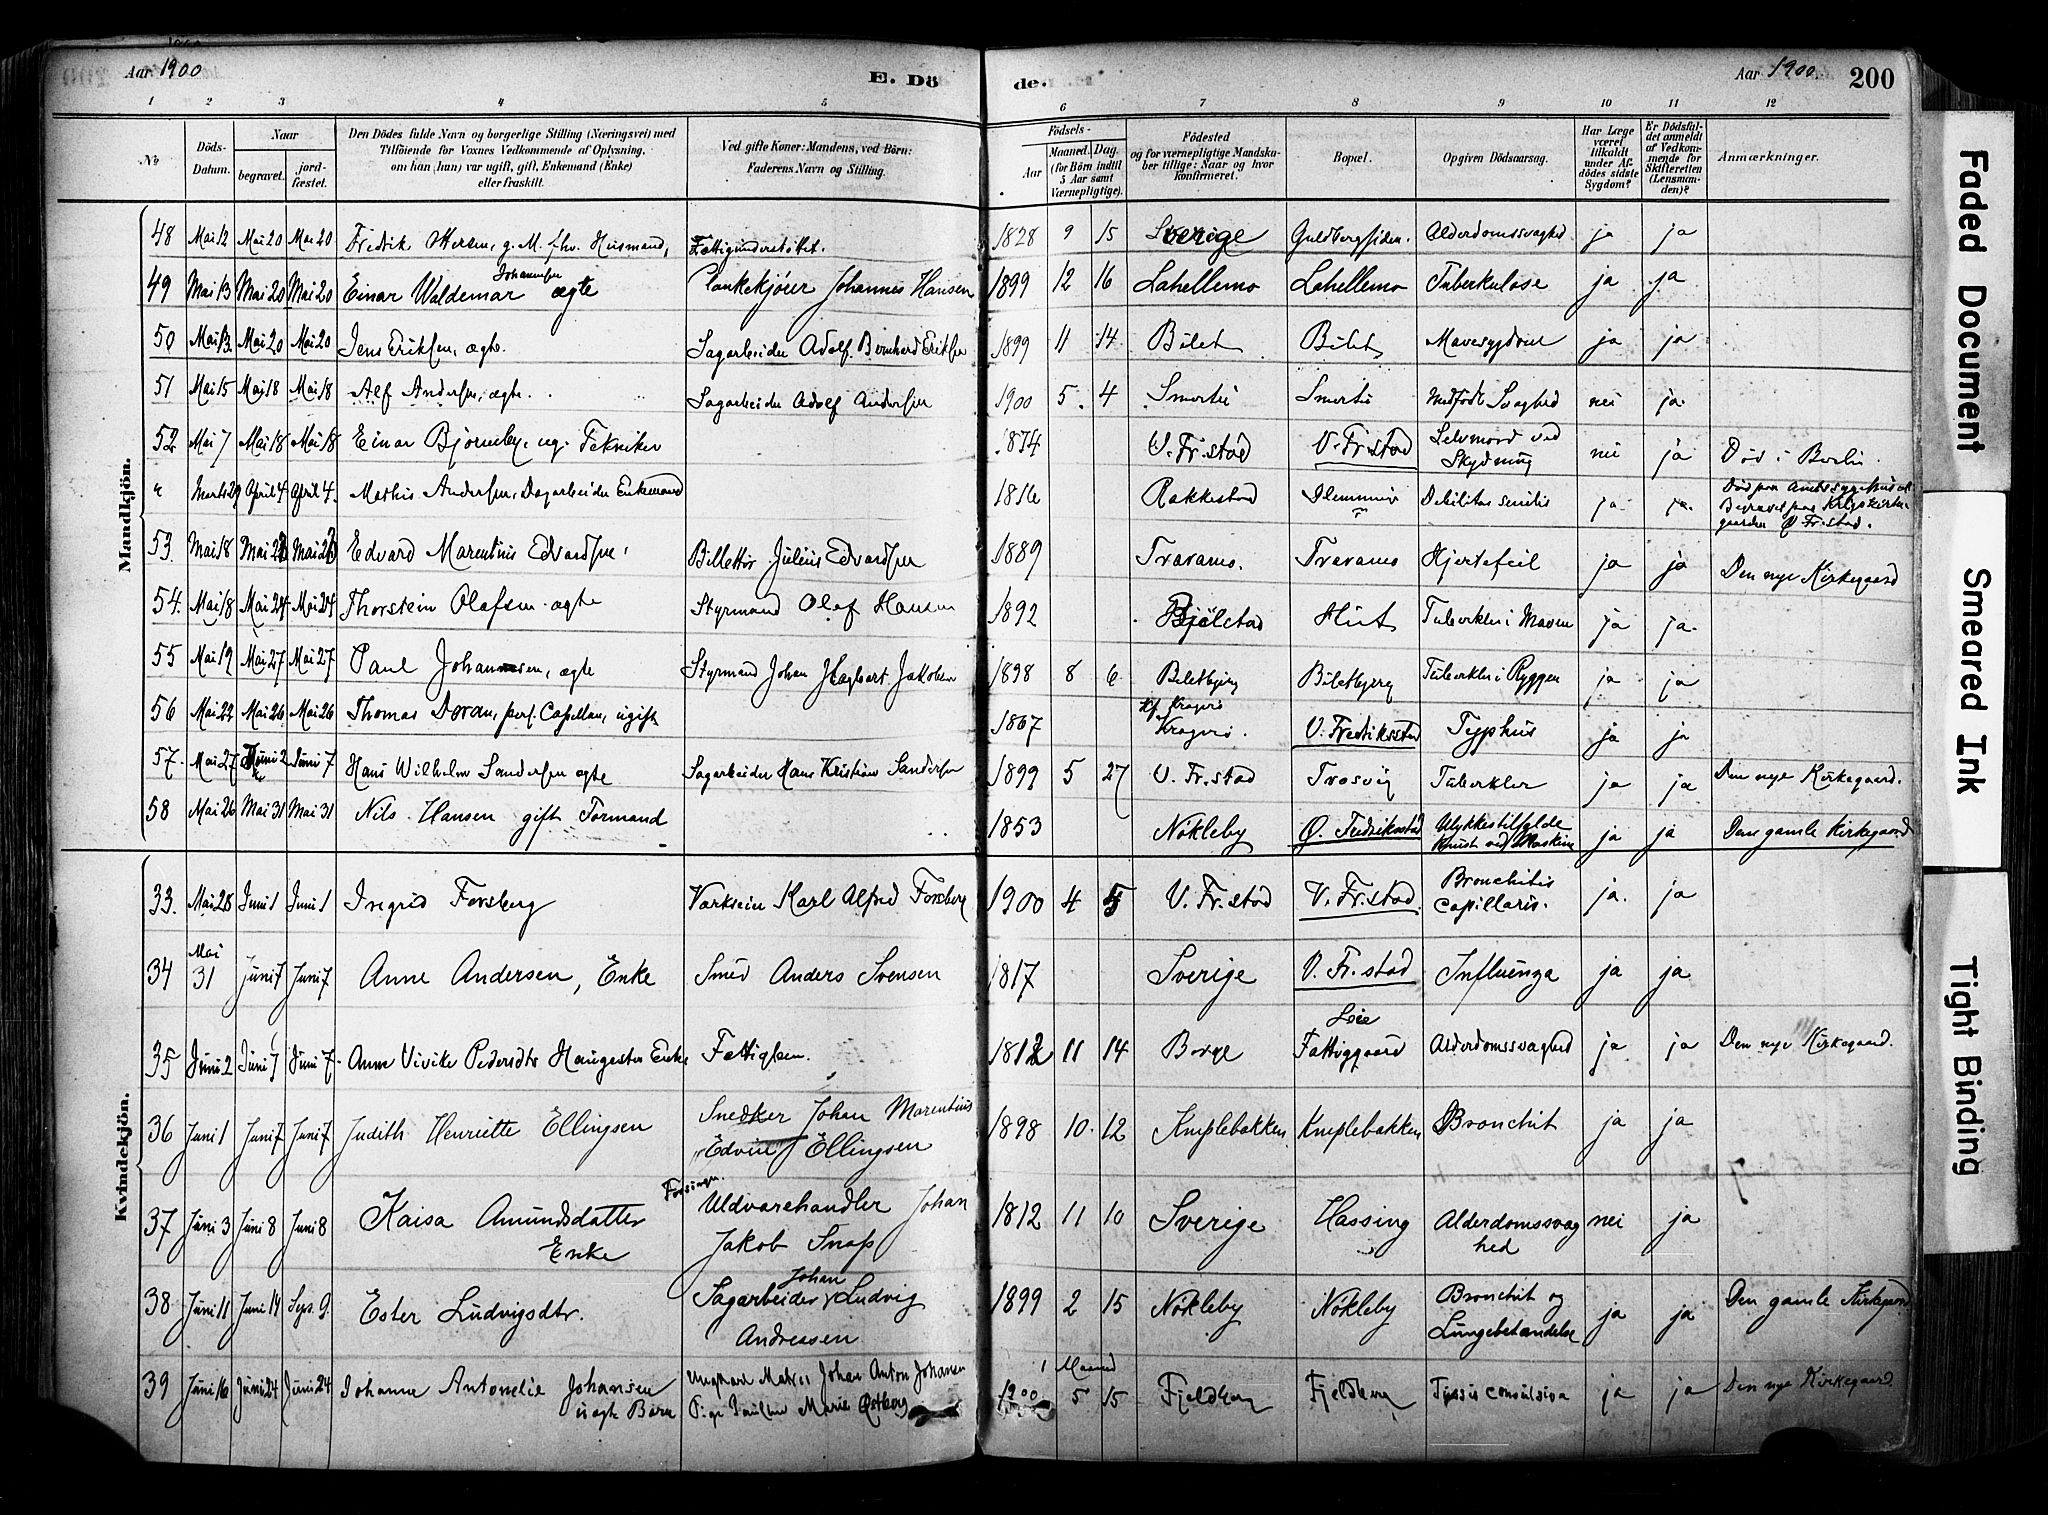 Aar 1900
E. Dö
de.
Aar 1900.
200
1 2 3 4 5 6 7 8 9 10 11 12
No
Döds-Datum.
Naar
begravet.
jord-fæstet.
Den Dödes fulde Navn og borgerlige Stilling (Næringsvei) med
Tilföiende for Voxnes Vedkommende af Oplysning,
om han (hun) var ugift, gift, Enkemand (Enke)
eller fraskilt.
Ved gifte Koner: Mandens, ved Börn:
Faderens Navn og Stilling.
Födsels-
Aar
Maaned. Dag.
(for Börn indtil
5 Aar samt
Værnepligtige).
Födested
og for værnepligtige Mandska-
ber tillige: Naar og hvor
konfirmeret.
Bopæl.
Opgiven Dödsaarsag.
Har Læge
været
tilkaldt
under Af-
dödes sidste
Sygdom?
Er Dödsfal-
det anmeldt
af Vedkom-
mende for
Skifteretten
(Lensman-
den)?
Anmærkninger.
Mandkjön.
48 Mai 12 Mai 20 Mai 20 Fredrik g. M. fhv. Husmand, Fattigunderstöttet. 1828 9 15 Sverige Alderdomssvaghed ja ja
49 Mai 13 Mai 20 Mai 20 Einar Waldemar Johannesen ægte Plankekjører Johannes Hansen 1899 12 16 Lahellemo Lahellemo Tuberkulose ja ja
50 Mai 13 Mai 20 Mai 20 Jens Eriksen, ægte. Sagarbeider Adolf Bernhard Eriksen 1899 11 14 Bilet Bilet Mavesygdom ja ja
51 Mai 15 Mai 18 Mai 18 Alf Andersen, ægte. Sagarbeider Adolf Andersen 1900 5. 4 Smertu Smertu Medfödt Svaghed nei ja.
52 Mai 7 Mai 18 Mai 18 Einar Bjørneby, ug. Tekniker 1874 V. Fr.stad V. Fr.stad Selvmord ved Skydning nei ja Död i Berlin.
" Marts 29 April 4 April 4. Mathis Andersen, Dagarbeider Enkemand 1816 Rakkestad Debilitas senilis ja ja. Död paa Amtssygehuset Begravet paa gaarden V Fr.stad.
53 Mai 18 Mai 23 Mai 23 Edvard Marentius Edvardsen, Billettör Julius Edvardsen 1889 Traramo. Traramo Hjertefeil ja ja Den nye Kirkegaard
54. Mai 18 Mai 24 Mai 24 Thorstein Olafsen ægte Styrmand Olaf Hansen 1892 Bjölstad Hut Tuberkler i Maven ja ja.
55 Mai 19 Mai 27 Mai 27 Paul Johannesen, ægte Styrmand Johan Hagbart Jakobsen 1898 8 6 Biletbjerg Biletbjerg Tuberkler i Ryggen ja ja
56 Mai 22 Mai 26 Mai 26 Thomas Doran, pers. Capellan, ugift 1867 Kragerö. V. Fredriksstad Typhus ja ja
57. Mai 27 Juni 2 Juni 7 Hans Wilhelm Sandersen ægte Sagarbeider Hans Kristian Sandersen 1899 5 27 V. Fr.stad Trosvig Tuberkler ja ja Den nye Kirkegaard.
58 Mai 26 Mai 31 Mai 31 Nils Hansen gift Formand 1853 Nökleby Ö. Fredriksstad Ulykkestilfælde Knust ved Maskine ja ja Den gamle Kirkegaard
Kvindekjön.
33. Mai 28 Juni 1 Juni 1 Ingrid Forsberg Værkseier Karl Alfred Forsberg 1900 4 5 V. Fr.stad V. Fr.stad. Bronchitis Capillaris. ja. ja
34 Mai 31 Juni 7 Juni 7 Anne Andersen, Enke Smed Anders Svensen 1817 Sverige V. Fr.stad Influenza ja ja
35 Juni 2 Juni 7 Juni 7 Anne Vivike Pedersdtr Haugesten Enke Fattiglem. 1812 11 14 Borge Leie Fattiggaard Alderdomssvaghed ja ja Den nye Kirkegaard.
36 Juni 1 Juni 7 Juni 7 Judith Henriette Ellingsen Snedker Johan Marentius Edvin Ellingsen 1898 10. 12 Kneplebakken Kneplebakken Bronchit ja ja
37 Juni 3 Juni 8 Juni 8 Kaisa Amundsdatter Enke Forsinger. Uldvarehandler Johan Jakob Snap 1812 11 10 Sverige Hassing Alderdomssvaghed nei ja
38 Juni 11 Juni 14 Sep. 9. Ester Ludvigsdtr. Sagarbeider Johan Ludvig Andreassen 1899 2 15 Nökleby Nökleby Bronchit og Lungebetændelse ja ja Den gamle Kirkegaard
39 Juni 16 Juni 24 Juni 24 Johanne Antonelie Johansen uægte Barn Ungkarl Matros Johan Anton Johansen Pige Pauline Marie Östberg 1900 1 Maaned 5 15 Fjeldberg Fjeldberg Tussis convulsiva ja ja Den nye Kirkegaard
Faded Document
Smeared Ink
Tight Binding